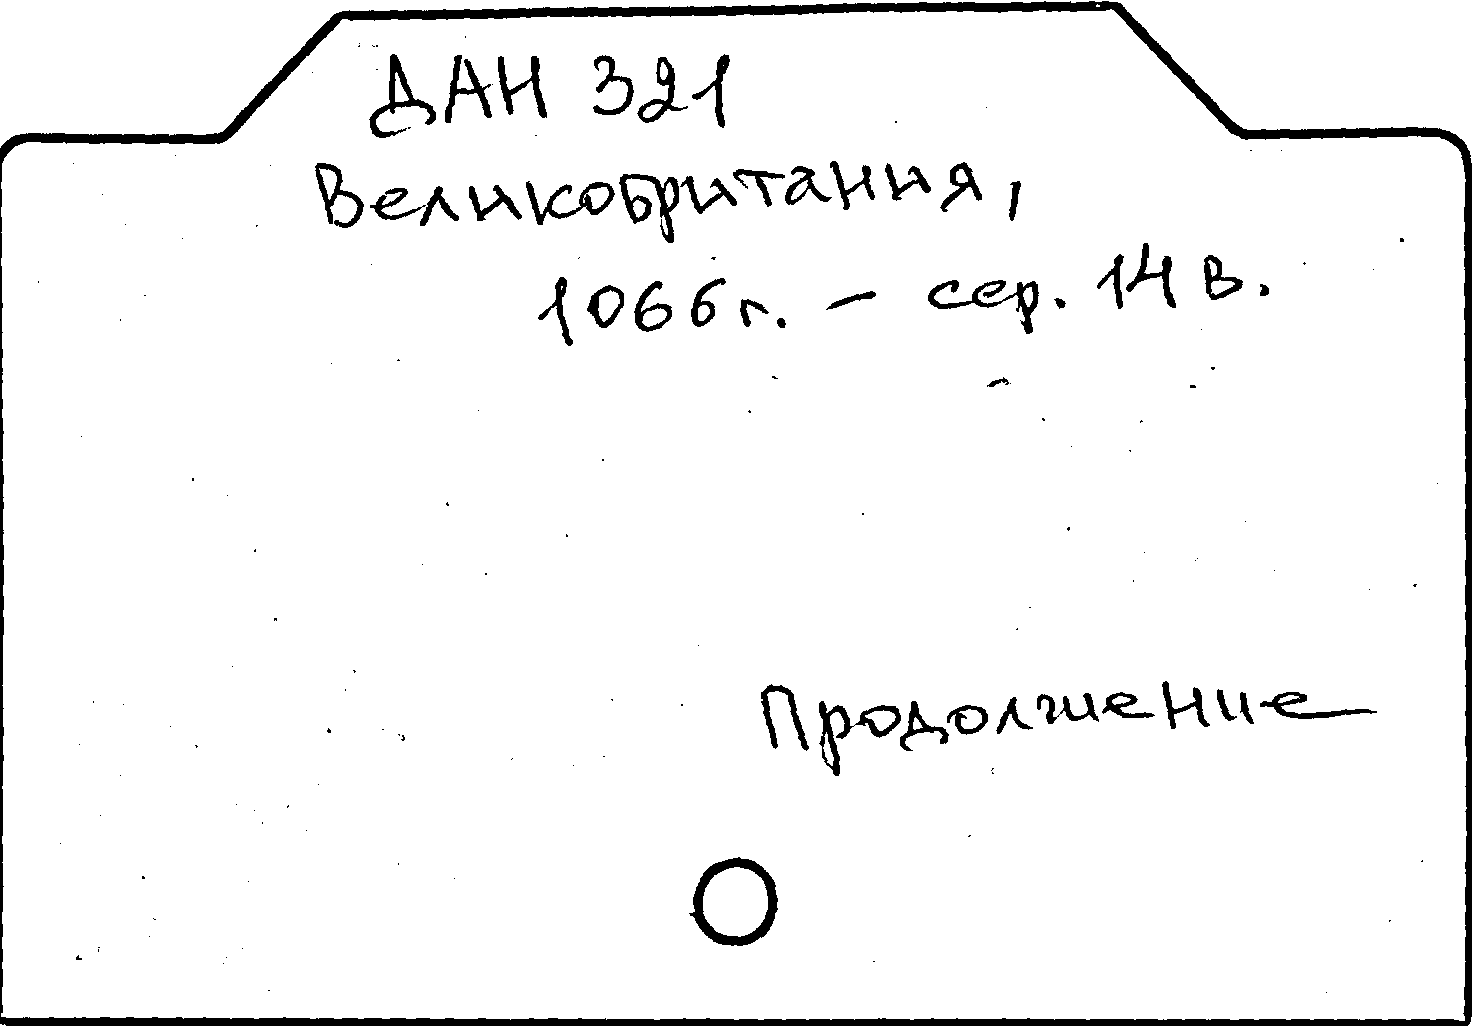 ДАН 321
Великобритания,
1066 г. – сер. 14 в.
Продолжение